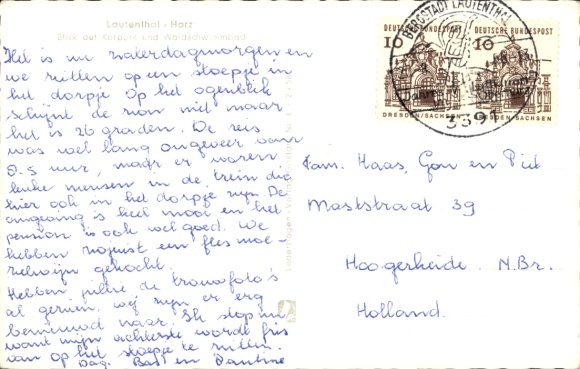 Lautenthal - Harz
Blick auf Kurpark und Waldschwimmbad
Het is nu zaterdagmorgen en
we zitten op een stoepje in
het dorpje. Op het ogenblik
schijnt de zon niet maar
het is 26 graden. De reis
was wel lang ongeveer van
uur, maar er waren
leuke mensen in de trein die
hier ook in het dorpje zijn. De
omgeving is heel mooi en het
pension is ook wel goed. We
hebben zojuist een fles moe-
zelwijn gekocht.
Hebben jullie de trouwfoto's
al gezien, wij zijn er erg
benieuwd naar. Ik stop nu
want mijn achterste wordt fris
van op het stoepje te zitten.
Dag. Bas en Pautine
BERGSTADT LAUTENTHAL
339
10
DEUTSCHE BUNDESPOST
DRESDEN/SACHSEN
10
DEUTSCHE BUNDESPOST
DRESDEN/SACHSEN
Fam. Haas, Gon en Piet
Maststraat 39
Hoogerheide. N.Br.
Holland.